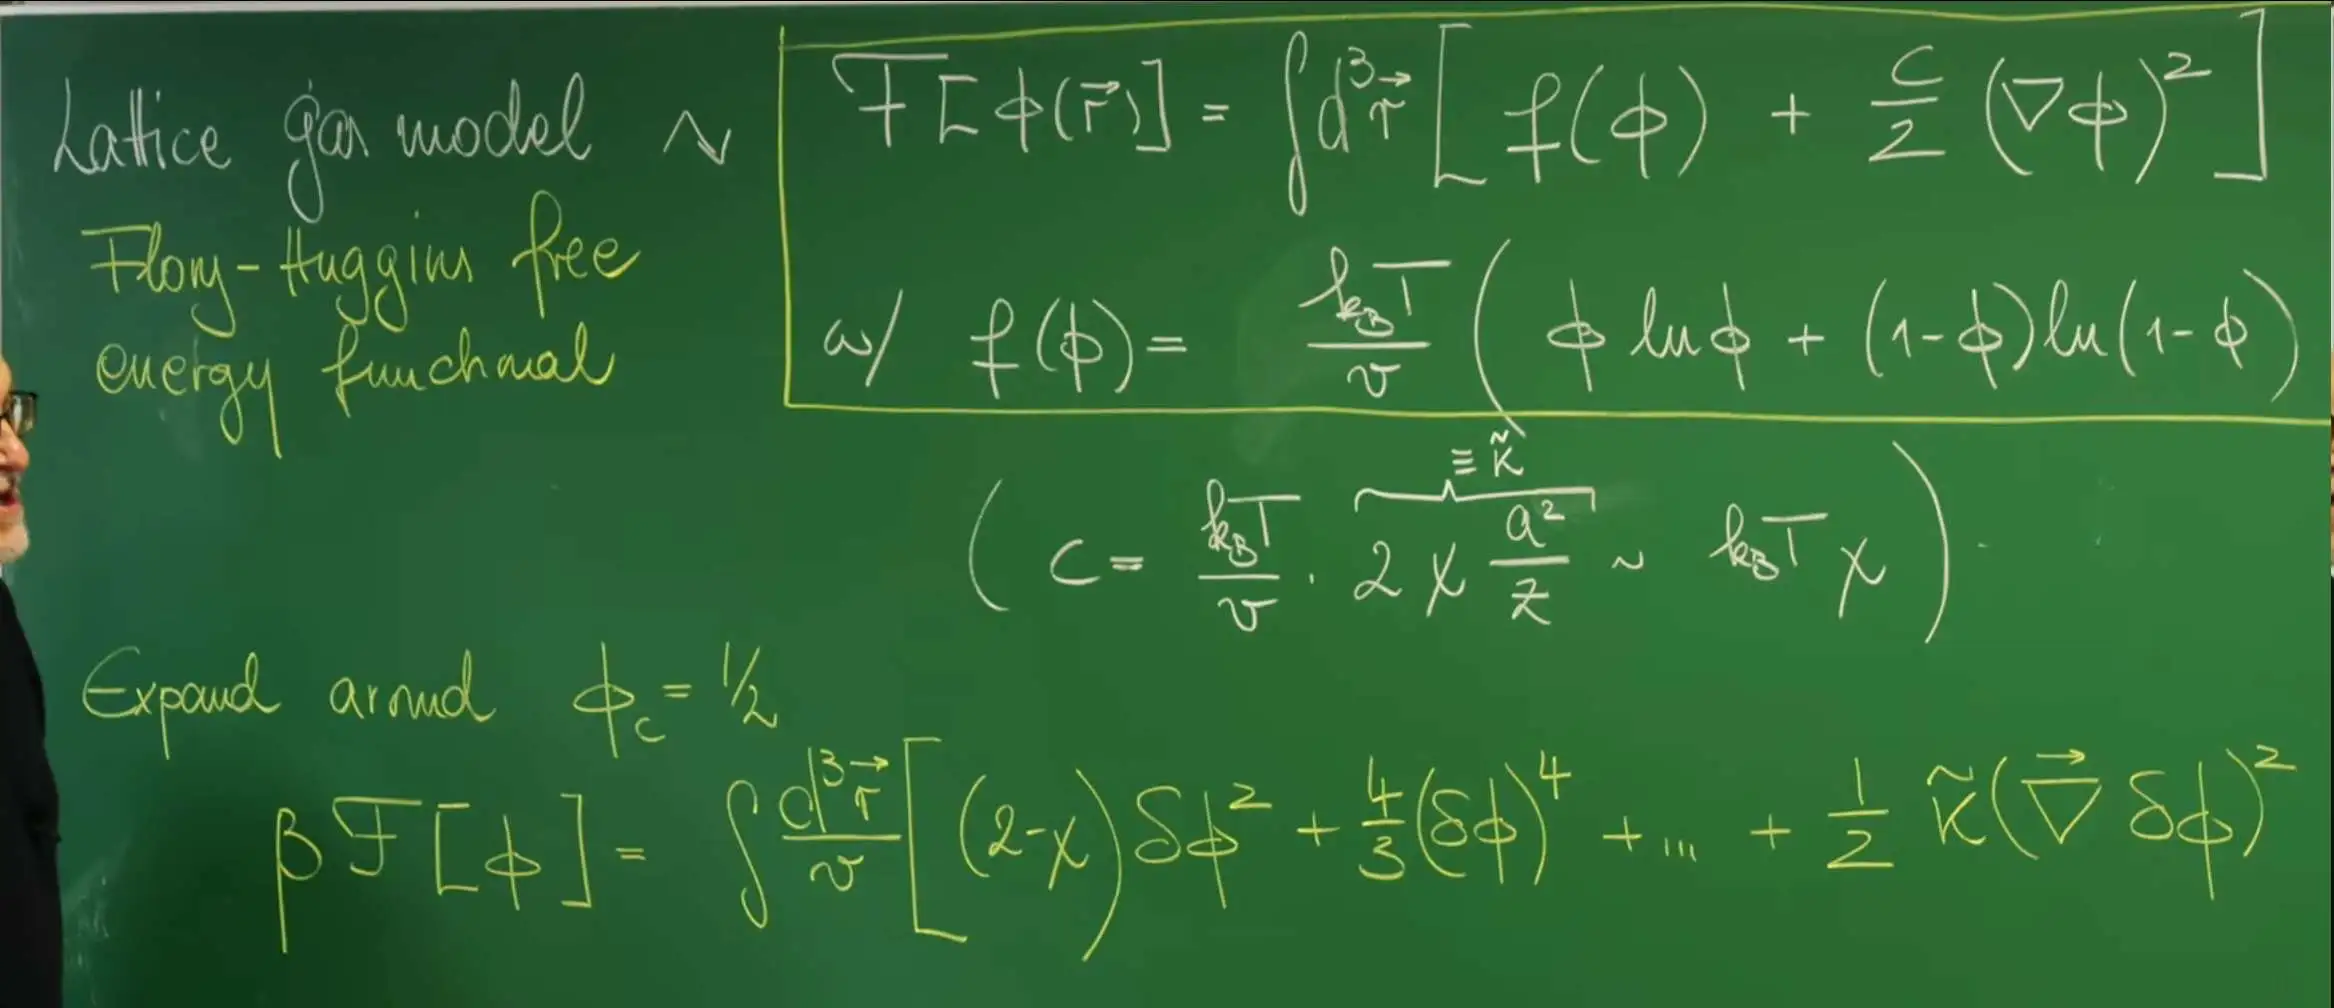 Lattice gas model ~ F[ϕ(r⃗)] = ∫d³r⃗ [ f(ϕ) + c/2 (∇ϕ)² ]
Flory-Huggins free
energy functional
w/ f(ϕ) = k_BT/v ( ϕ ln ϕ + (1-ϕ) ln(1-ϕ)
( c = k_BT/v · 2χ a²/z ~ k_BT χ )
≡ κ̃
Expand around ϕ_c = 1/2
βF[ϕ] = ∫ d³r⃗/v [ (2-χ) δϕ² + 4/3 (δϕ)⁴ + ... + 1/2 κ̃ (∇⃗ δϕ)²